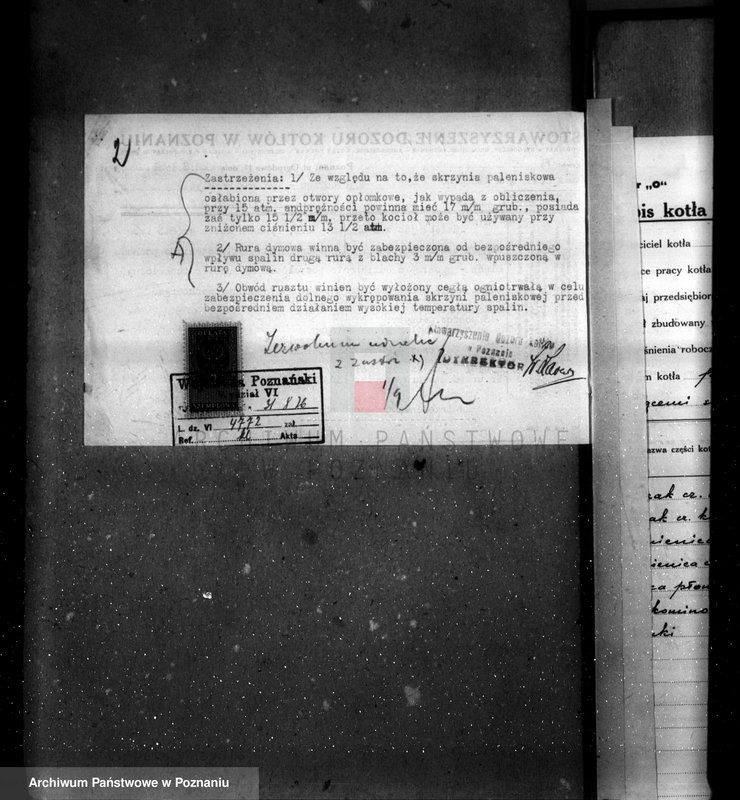 STOWARZYSZENIE DOZORU KOTŁÓW W POZNANIU
2)
Zastrzeżenia: 1/ Ze względu na to, że skrzynia paleniskowa
osłabiona przez otwory opłomkowe, jak wypada z obliczenia,
przy 15 atm. nadprężności powinna mieć 17 m/m grub., posiada
zaś tylko 15 1/2 m/m, przeto kocioł może być używany przy
zniżonem ciśnieniu 13 1/2 atm.
2/ Rura dymowa winna być zabezpieczona od bezpośredniego
wpływu spalin drugą rurą z blachy 3 m/m grub. wpuszczoną w
rurę dymową.
3/ Obwód rusztu winien być wyłożony cegłą ogniotrwałą w celu
zabezpieczenia dolnego wykrępowania skrzyni paleniskowej przed
bezpośredniem działaniem wysokiej temperatury spalin.
Stowarzyszenie Dozoru Kotłów
w Poznaniu
DYREKTOR
z x)
1/9
Poznański
VI
31 8 26
L. dz. VI 4772 zał.
Ref. Akta
ARCHIWUM PAŃSTWOWE
W POZNANIU
r „O"
is kotła
ciciel kotła
ce pracy kotła
aj przedsiębior
ł zbudowany
śnienia robocz
m kotła
azwa części kot
Archiwum Państwowe w Poznaniu